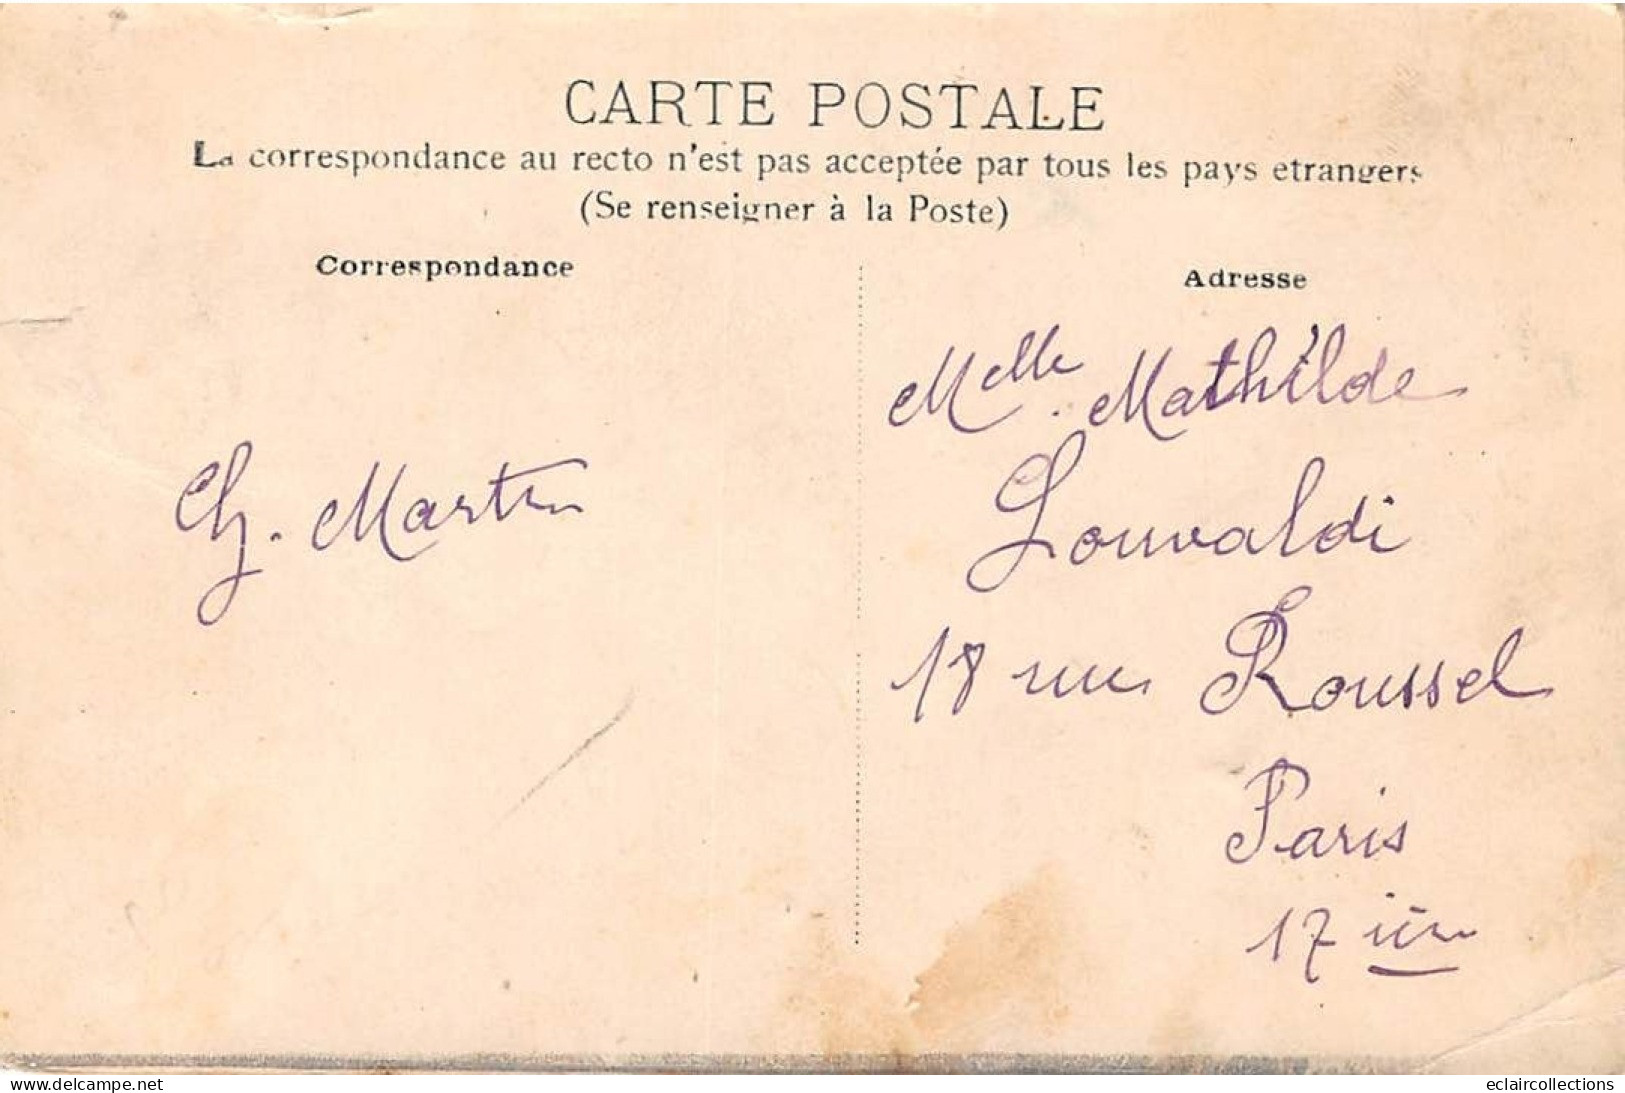 CARTE POSTALE
La correspondance au recto n'est pas acceptée par tous les pays etrangers
(Se renseigner à la Poste)
Correspondance
Adresse
Melle. Mathilde
Louvaldi
Ch. Martin
18 rue Roussel
Paris
17 ièm
www.delcampe.net
eclaircollections